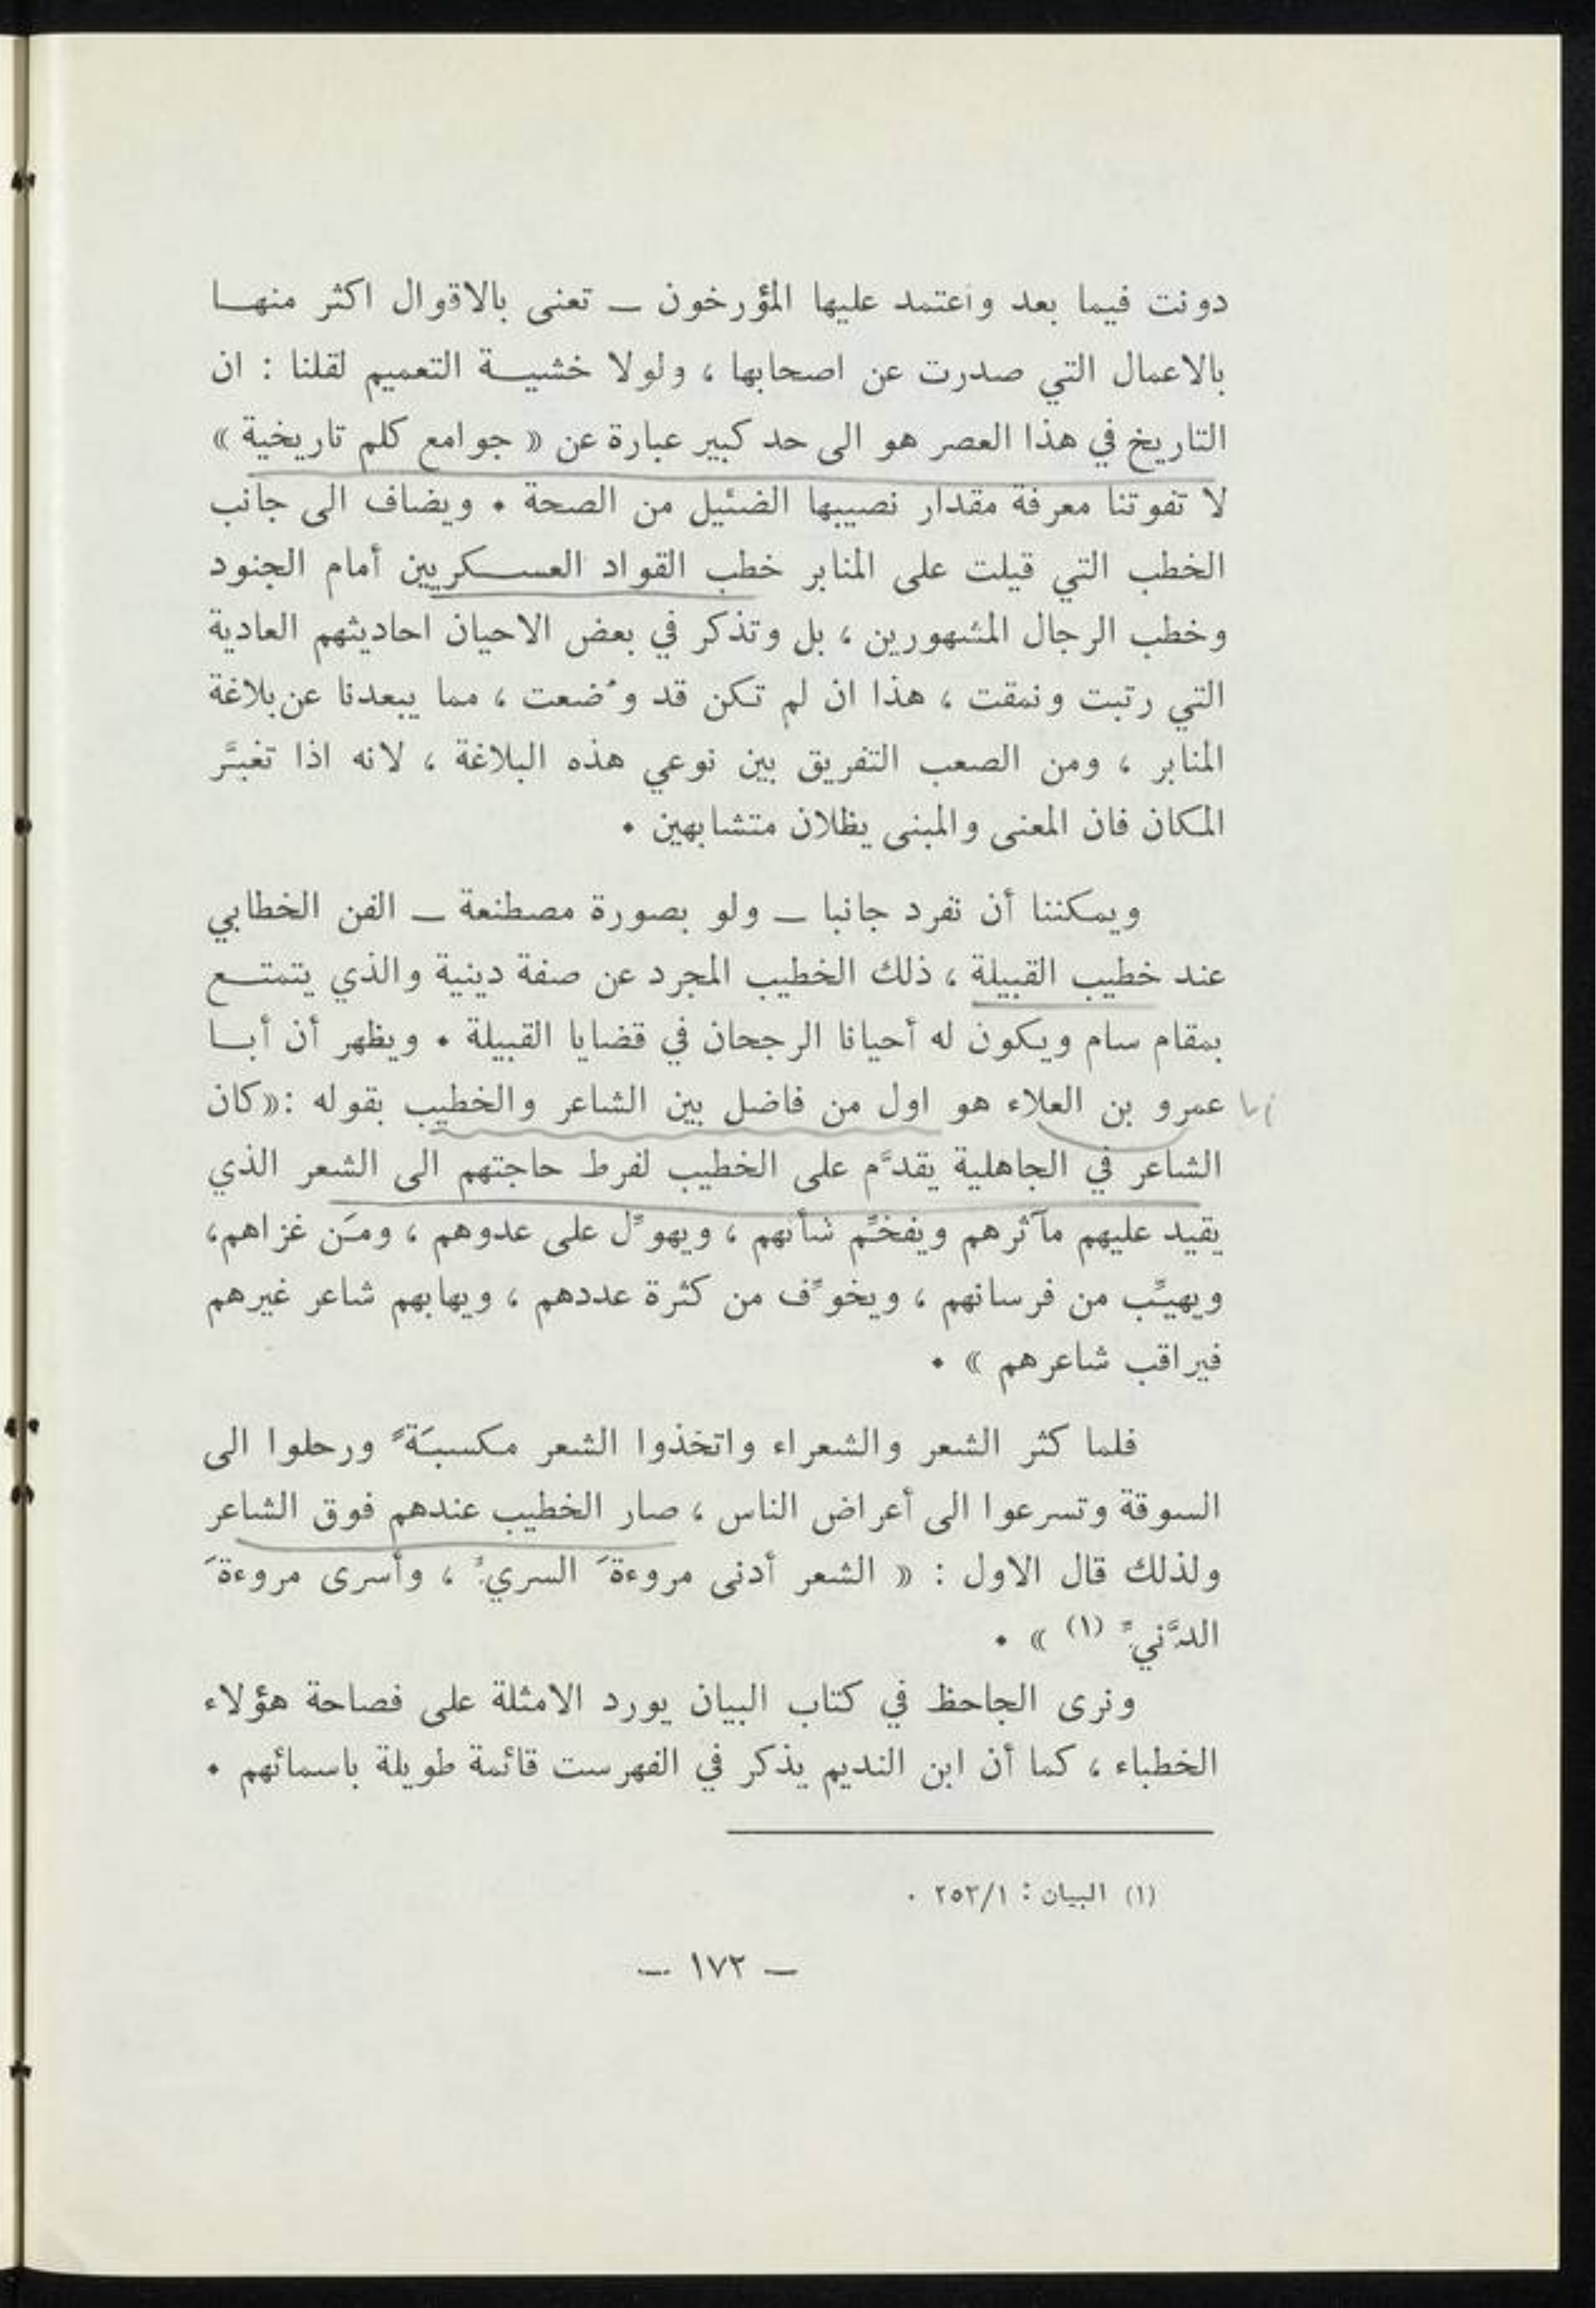 دونت فيما بعد واعتمد عليها المؤرخون ــ تعنى بالاقوال اكثر منهـا
بالاعمال التي صدرت عن اصحابها ، ولولا خشيـة التعميم لقلنا : ان
التاريخ في هذا العصر هو الى حد كبير عبارة عن « جوامع كلم تاريخية »
لا تفوتنا معرفة مقدار نصيبها الضئيل من الصحة . ويضاف الى جانب
الخطب التي قيلت على المنابر خطب القواد العسـكريين أمام الجنود
وخطب الرجال المشهورين ، بل وتذكر في بعض الاحيان احاديثهم العادية
التي رتبت ونمقت ، هذا ان لم تكن قد وُضعت ، مما يبعدنا عن بلاغة
المنابر ، ومن الصعب التفريق بين نوعي هذه البلاغة ، لانه اذا تغيَّر
المكان فان المعنى والمبنى يظلان متشابهين .
ويمكننا أن نفرد جانبا ــ ولو بصورة مصطنعة ــ الفن الخطابي
عند خطيب القبيلة ، ذلك الخطيب المجرد عن صفة دينية والذي يتمتـع
بمقام سام ويكون له أحيانا الرجحان في قضايا القبيلة . ويظهر أن أبـا
عمرو بن العلاء هو اول من فاضل بين الشاعر والخطيب بقوله :«كان
الشاعر في الجاهلية يقدَّم على الخطيب لفرط حاجتهم الى الشعر الذي
يقيد عليهم مآثرهم ويفخِّم شأنهم ، ويهوِّل على عدوهم ، ومَن غزاهم،
ويهيِّب من فرسانهم ، ويخوِّف من كثرة عددهم ، ويهابهم شاعر غيرهم
فيراقب شاعرهم » .
فلما كثر الشعر والشعراء واتخذوا الشعر مكسبَةً ورحلوا الى
السوقة وتسرعوا الى أعراض الناس ، صار الخطيب عندهم فوق الشاعر
ولذلك قال الاول : « الشعر أدنى مروءةَ السريِّ ، وأسرى مروءةَ
الدَّنيِّ (١) » .
ونرى الجاحظ في كتاب البيان يورد الامثلة على فصاحة هؤلاء
الخطباء ، كما أن ابن النديم يذكر في الفهرست قائمة طويلة باسمائهم .
(١) البيان : ٢٥٣/١ .
— ١٧٢ —